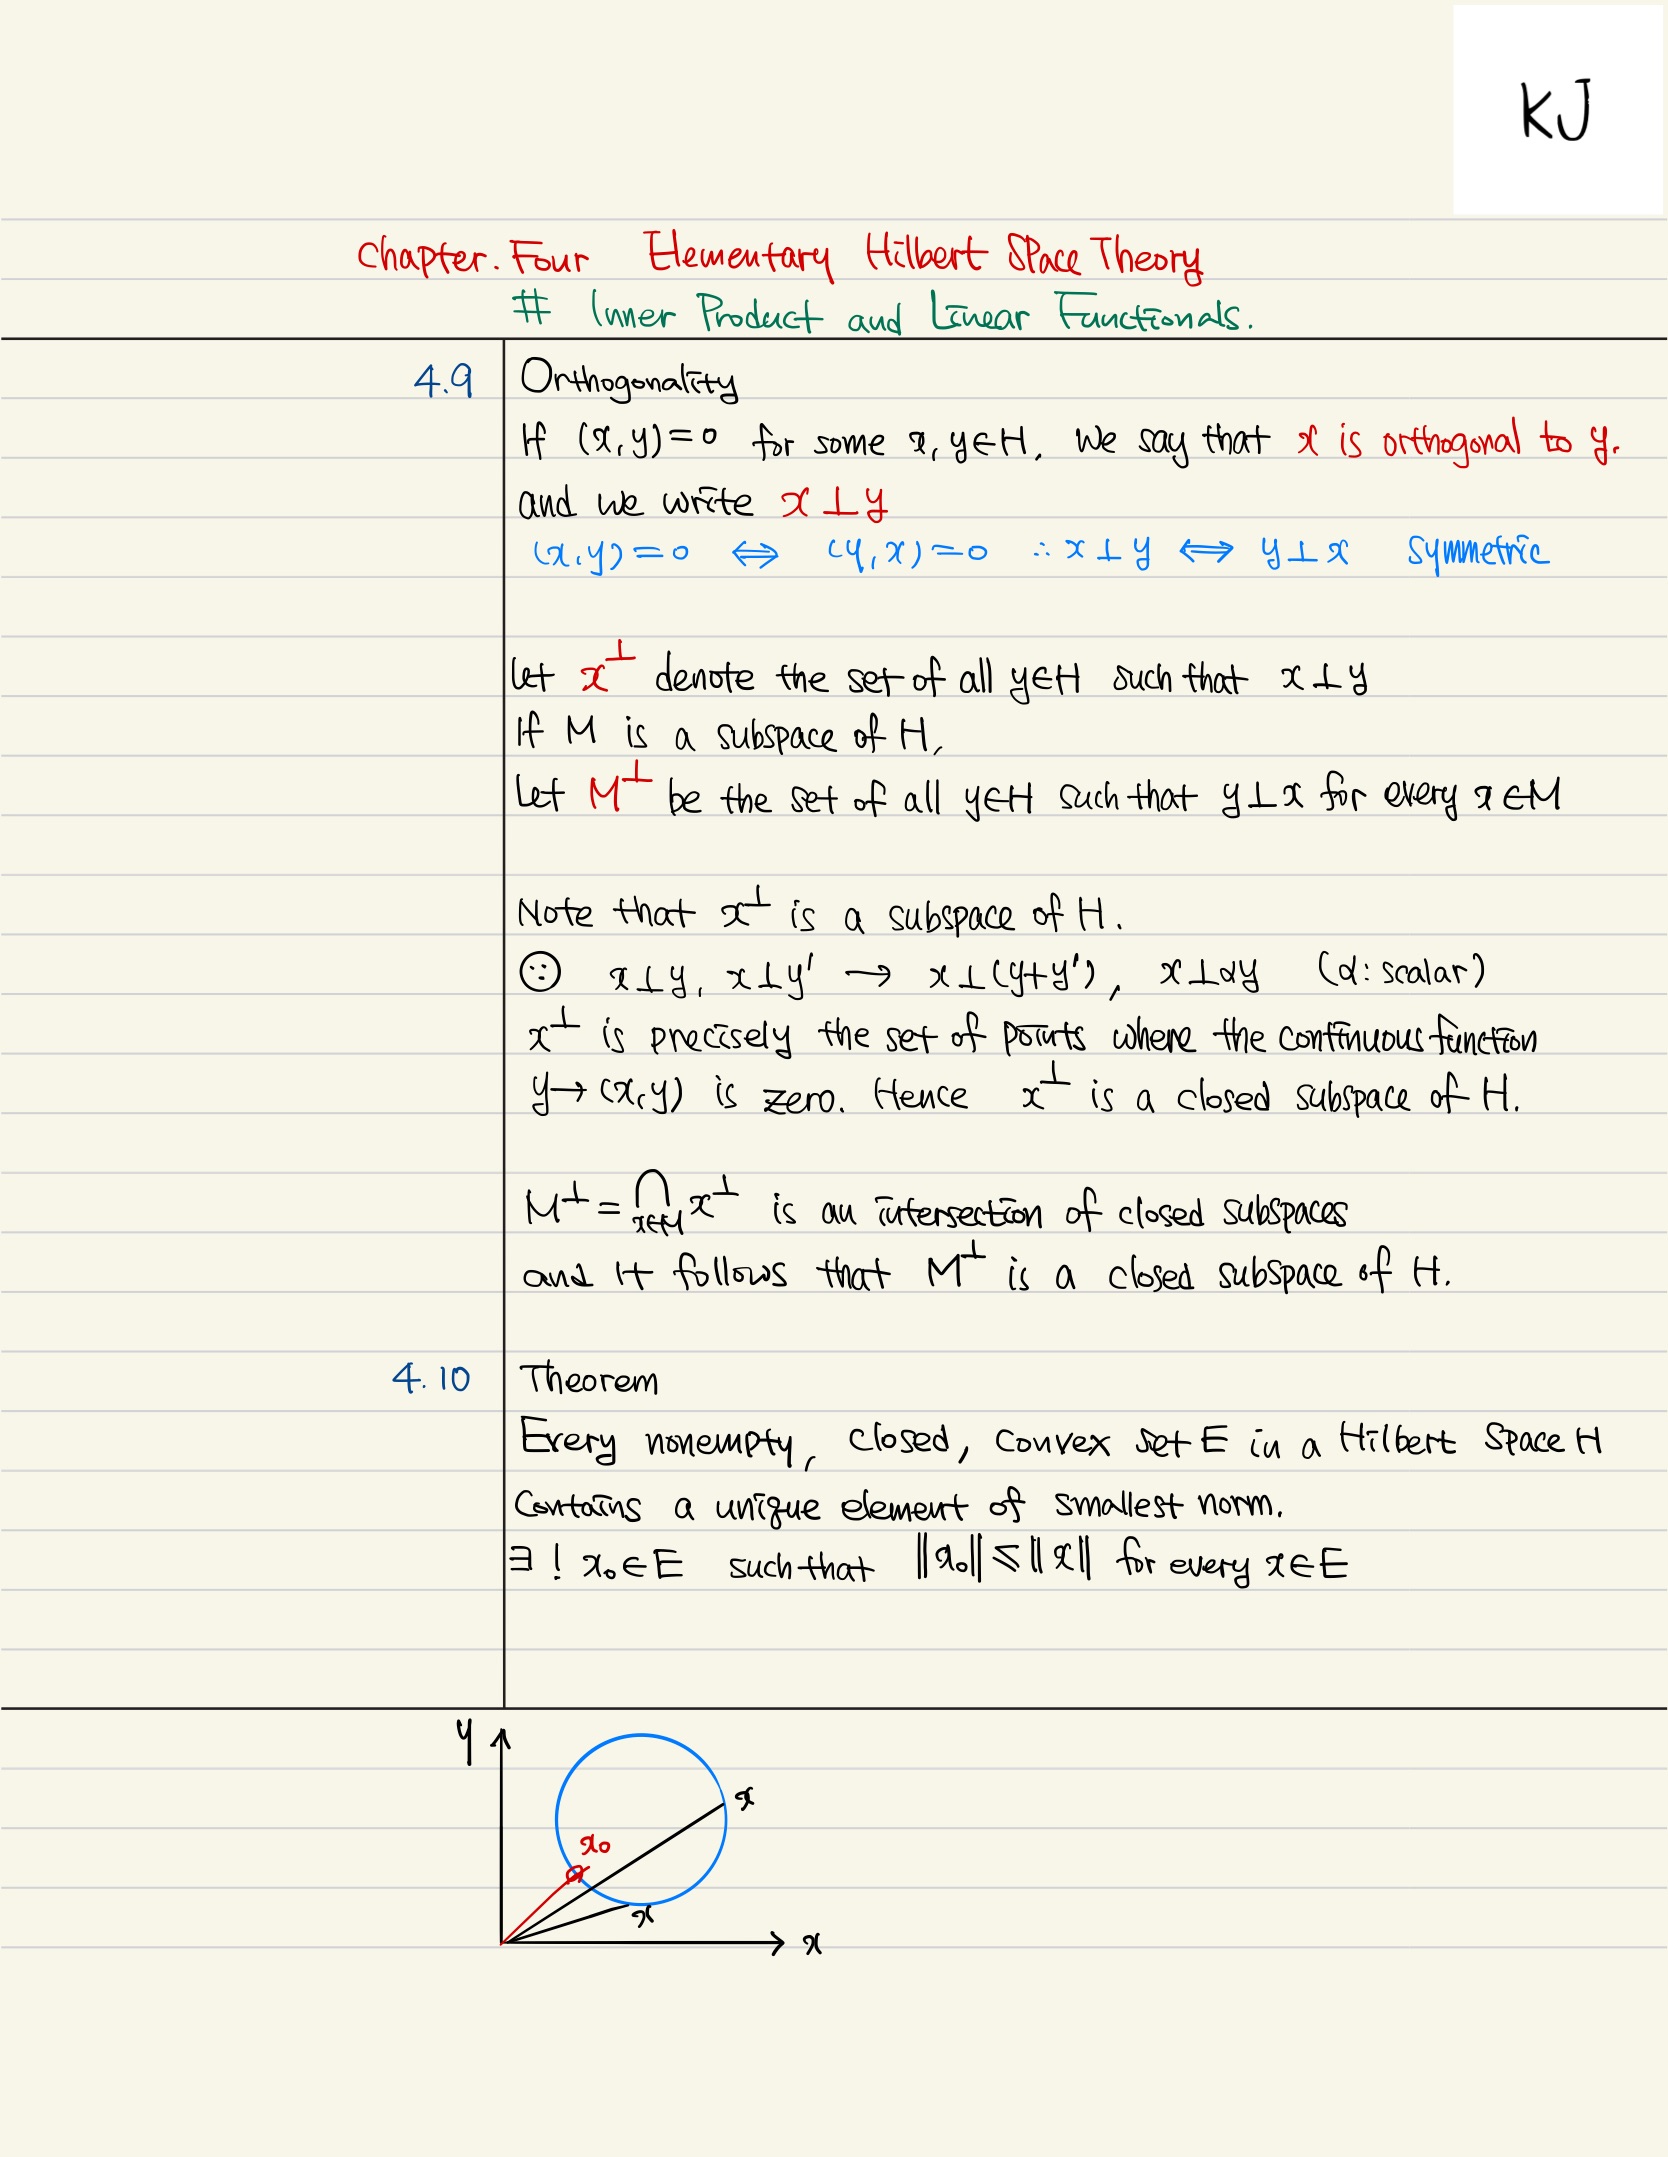 KJ
Chapter. Four Elementary Hilbert Space Theory
# Inner Product and Linear Functionals.
4.9 Orthogonality
If (x,y)=0 for some x, y∈H, we say that x is orthogonal to y.
and we write x⊥y
(x,y)=0 ⟺ (y,x)=0 ∴ x⊥y ⟺ y⊥x Symmetric
Let x^⊥ denote the set of all y∈H such that x⊥y
If M is a subspace of H,
Let M^⊥ be the set of all y∈H such that y⊥x for every x∈M
Note that x^⊥ is a subspace of H.
∵ x⊥y, x⊥y' → x⊥(y+y'), x⊥αy (α: scalar)
x^⊥ is precisely the set of points where the continuous function
y→(x,y) is zero. Hence x^⊥ is a closed subspace of H.
M^⊥ = ⋂_{x∈M} x^⊥ is an intersection of closed subspaces
and it follows that M^⊥ is a closed subspace of H.
4.10 Theorem
Every nonempty, closed, convex set E in a Hilbert Space H
contains a unique element of smallest norm.
∃! x₀∈E such that ‖x₀‖≤‖x‖ for every x∈E
y
x
x₀
x
x